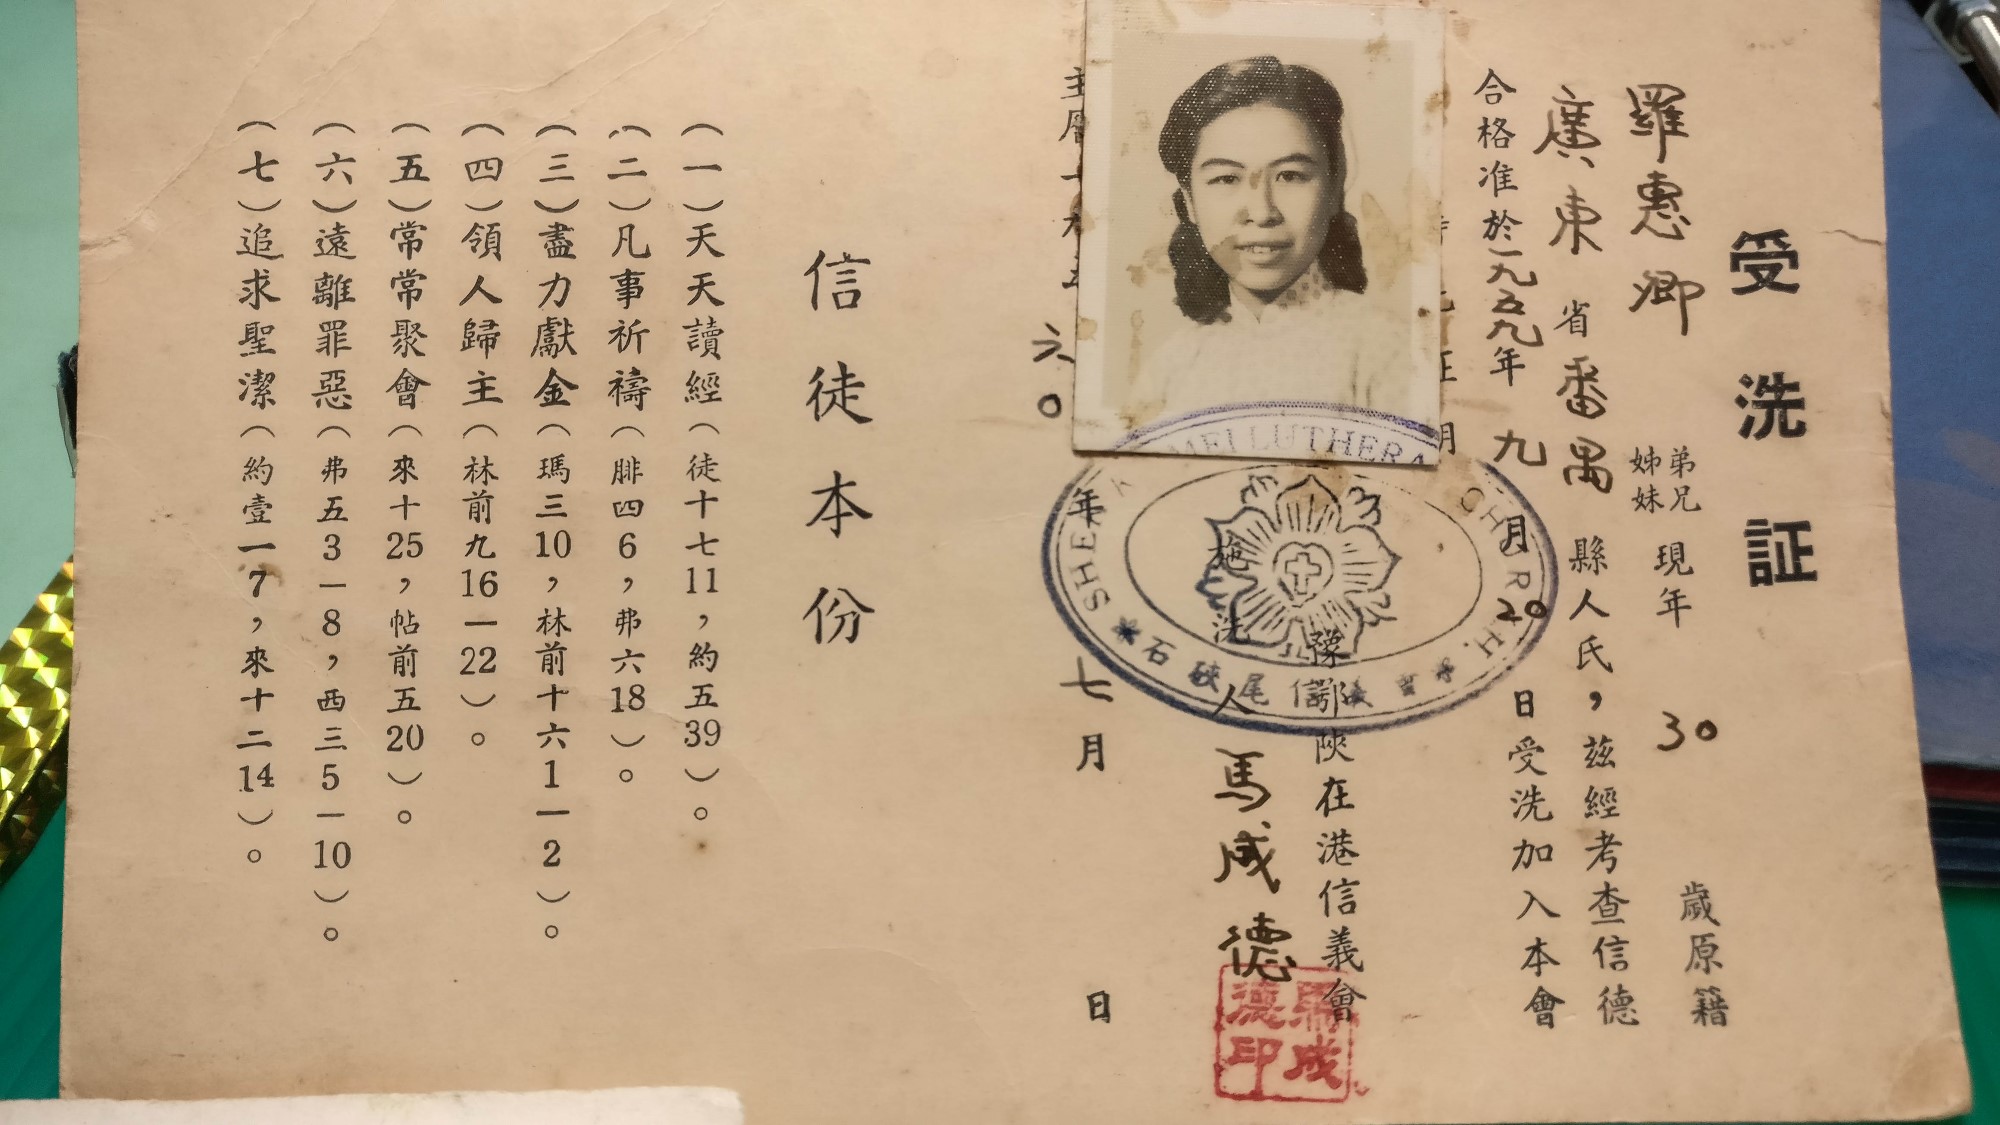 受洗証
羅惠卿 弟兄姊妹 現年 30 歲原籍
廣東省番禺縣人氏，茲經考查信德
合格准於一九五九年九月20日受洗加入本會
豫鄂陝在港信義會
施洗人 馬成德
馬成德印
六0年七月 日
SHE MEI LUTHERA CHURCH
石硤尾信義會
信徒本份
(一)天天讀經(徒十七11，約五39)。
(二)凡事祈禱(腓四6，弗六18)。
(三)盡力獻金(瑪三10，林前十六1—2)。
(四)領人歸主(林前九16—22)。
(五)常常聚會(來十25，帖前五20)。
(六)遠離罪惡(弗五3—8，西三5—10)。
(七)追求聖潔(約壹一7，來十二14)。